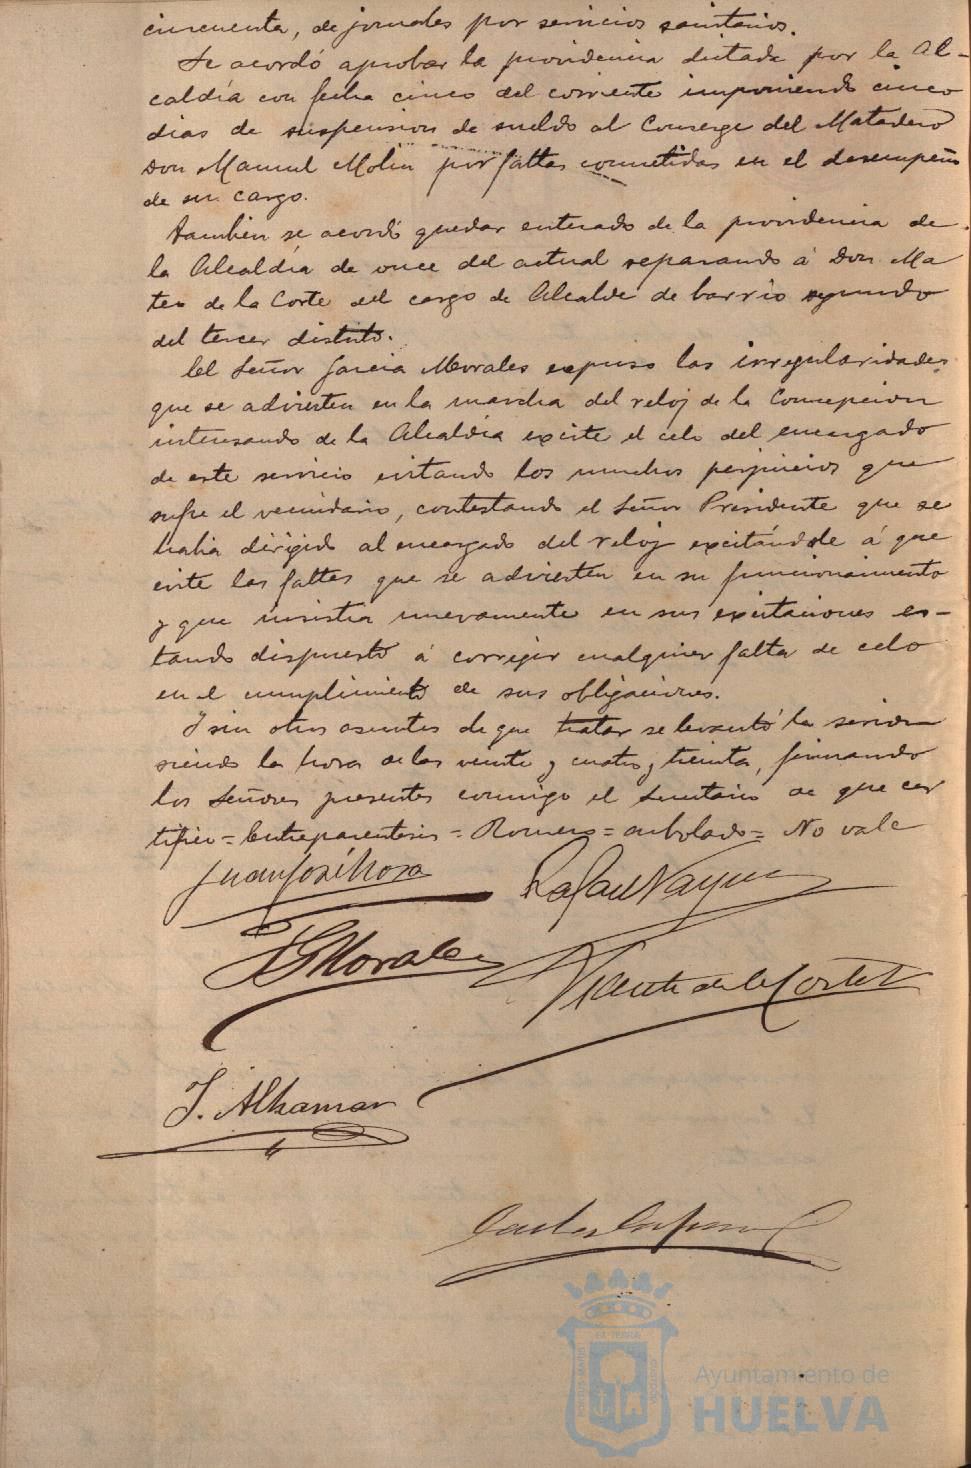 cincuenta, de jornales por servicios sanitarios.
Se acordó aprobar la providencia dictada por la Al-
caldía con fecha cinco del corriente imponiendo cinco
dias de suspension de sueldo al Conserge del Matadero
Don Manuel Molin por faltas cometidas en el desempeño
de su cargo.
Tambien se acordó quedar enterado de la providencia de
la Alcaldía de once del actual separando á Don Ma
teo de la Corte del cargo de Alcalde de barrio segundo
del tercer distrito.
El Señor Garcia Morales expuso las irregularidades
que se advierten en la marcha del reloj de la Concepcion
interesando de la Alcaldía excite el celo del encargado
de este servicio evitando los muchos perjuicios que
sufre el vecindario, contestando el Señor Presidente que se
habia dirigido al encargado del reloj excitándole á que
evite las faltas que se advierten en su funcionamiento
y que insistia nuevamente en sus excitaciones es-
tando dispuesto á corregir cualquier falta de celo
en el cumplimiento de sus obligaciones.
Y sin otros asuntos de que tratar se levantó la sesion
siendo la hora de las veinte y cuatro y treinta, firmando
los Señores presentes conmigo el Secretario de que cer
tifico = Entreparentesis = Romero = arbolado = No vale
Juan José Mora
Rafael Vazquez
G Morales
Vicente de la Corte
J. Alhamar
Ayuntamiento de
HUELVA